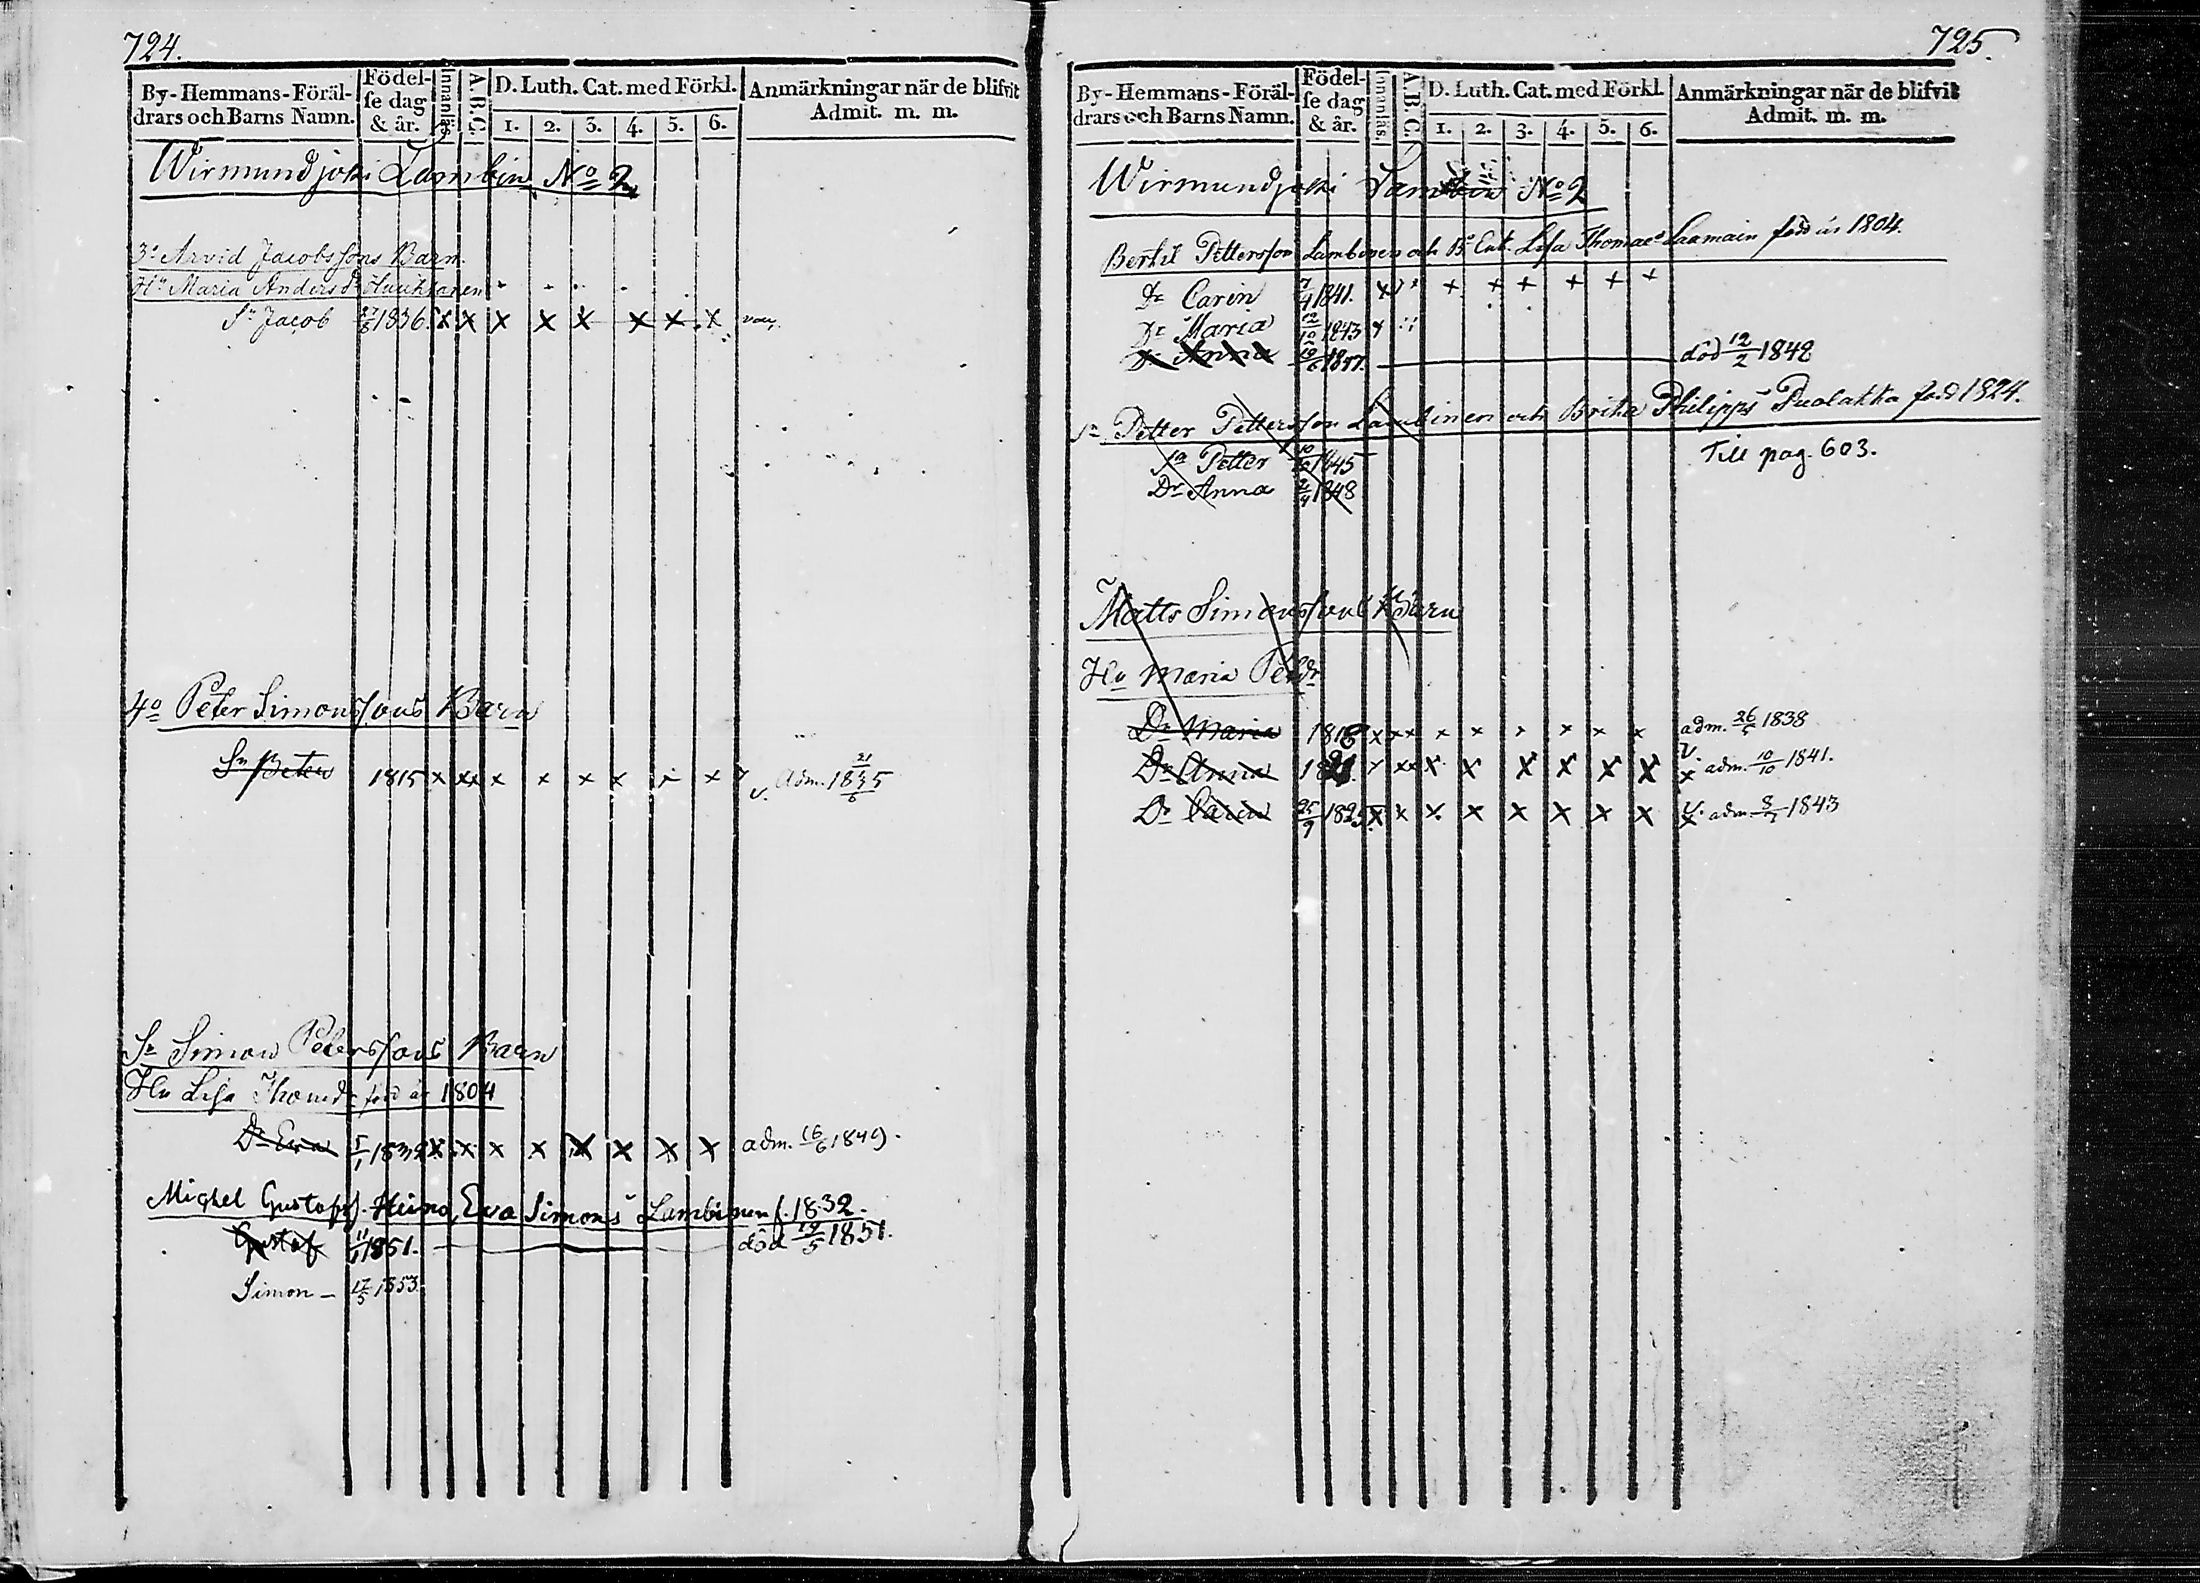 724.
By-Hemmans-Föräl-drars och Barns Namn.
Födel-se dag & år.
Innanläs.
A.B.C.
D. Luth. Cat. med Förkl.
1. 2. 3. 4. 5. 6.
Anmärkningar när de blifvit Admit. m. m.
Wirmundjoki Lambin No 2
3o Arvid Jacobssons Barn.
Hu Maria Anders dr
Sn Jacob 1836. x x x x x x x x
4o Peter Simonssons Barn
Sn Peter 1815 x xx x x x x x adm. 21/6 1835
Sn Simon Peterssons Barn
Hu Lisa Thomdr född år 1804
Dr Eva 1832 x x x x x x x x adm. 16/6 1849.
Michel Gustafs. Heino, Eva Simons Lambinen f. 1832.
Gustaf 1851. död 19/5 1851.
Simon – 17/5 1853.
725.
By-Hemmans-Föräl-drars och Barns Namn.
Födel-se dag & år.
Innanläs.
A.B.C.
D. Luth. Cat. med Förkl.
1. 2. 3. 4. 5. 6.
Anmärkningar när de blifvit Admit. m. m.
Wirmundjoki Lambin No 2
Bertil Pettersson Lambinen och Lisa Thomae Laamain född år 1804.
Dr Carin 7/4 1841. x + + + + + +
Dr Maria 12/10 1843 x
Dr Anna 10/6 1847. död 12/2 1848
Sn Petter Pettersson Lambinen och Brita Philipps Puolakka född 1824.
Sn Petter 1845 Till pag. 603.
Dr Anna 2/4 1848
Matts Simonssons Barn
Hu Maria Petdr
Dr Maria 1818 x xx x x x x x x adm. 1838
Dr Anna 1821 x xx x x x x x x v. x adm. 10/10 1841.
Dr Carin 25/9 1825 x x x x x x x x v. x adm. 1843